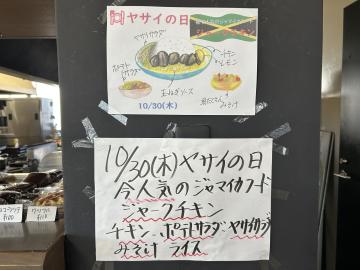 ヤサイの日
ヤサイサラダ
チキン
レモン
ポテト
サラダ
玉ねぎソース
みそ汁
10/30(木)
10/30(木)ヤサイの日
今人気のジャマイカフード
ジャークチキン
チキン、ポテトサラダ ヤサイサラダ
みそ汁 ライス